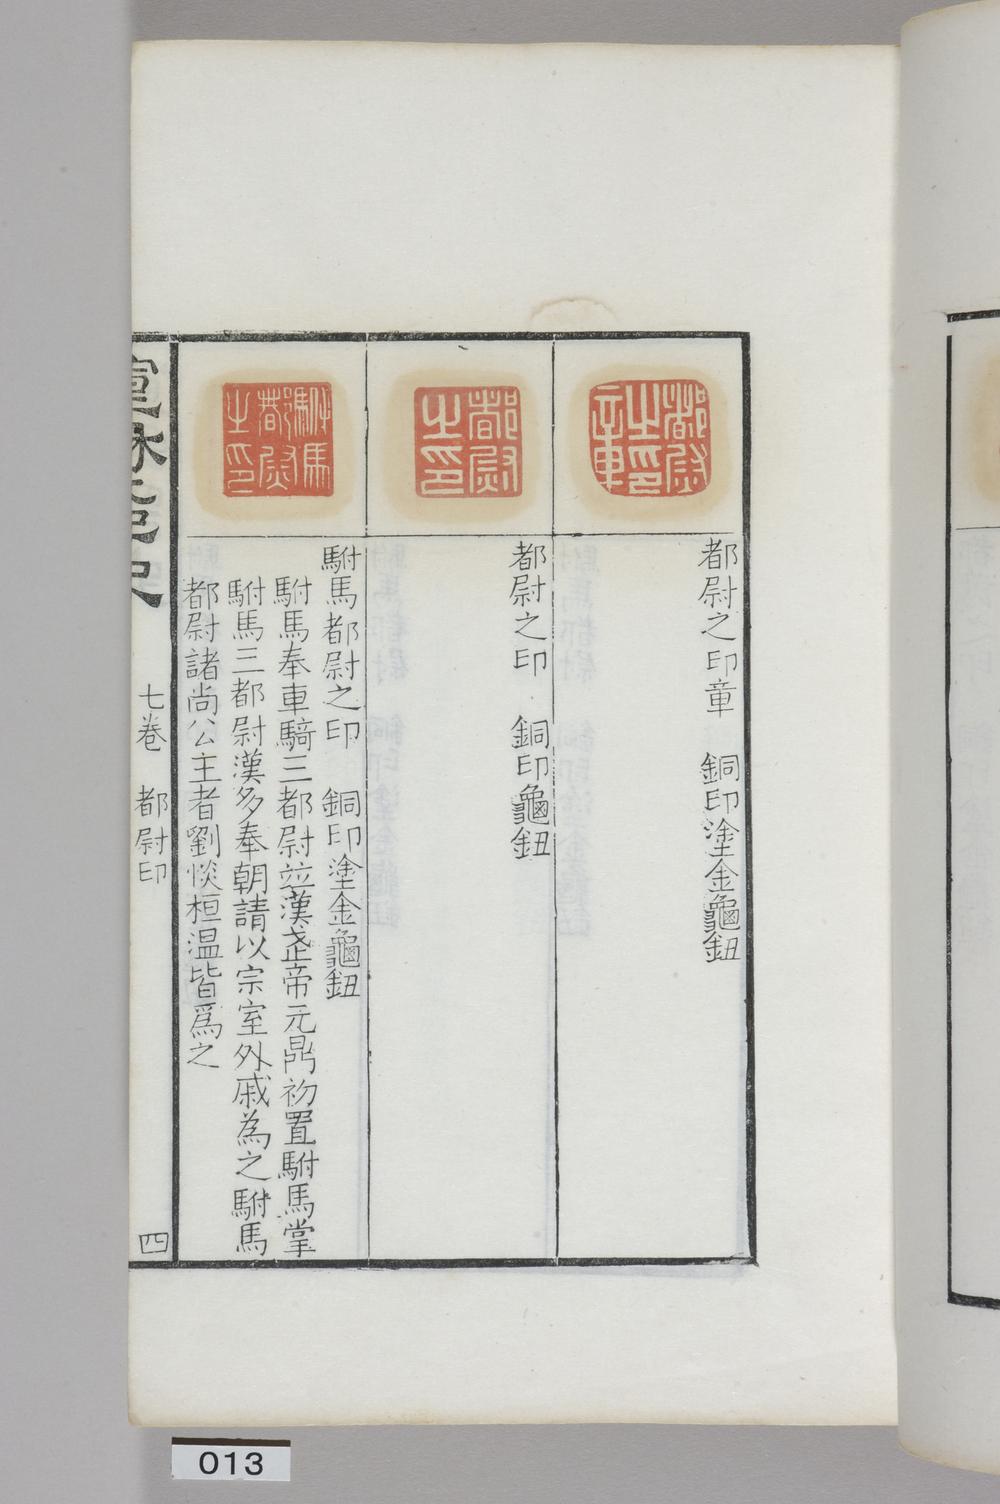 都尉之印章
都尉之印章 銅印塗金龜鈕
都尉之印
都尉之印 銅印龜鈕
駙馬都尉之印
駙馬都尉之印 銅印塗金龜鈕
駙馬奉車騎三都尉竝漢武帝元鼎初置駙馬掌
駙馬三都尉漢多奉朝請以宗室外戚為之駙馬
都尉諸尚公主者劉惔桓温皆爲之
宣
七卷 都尉印
四
013